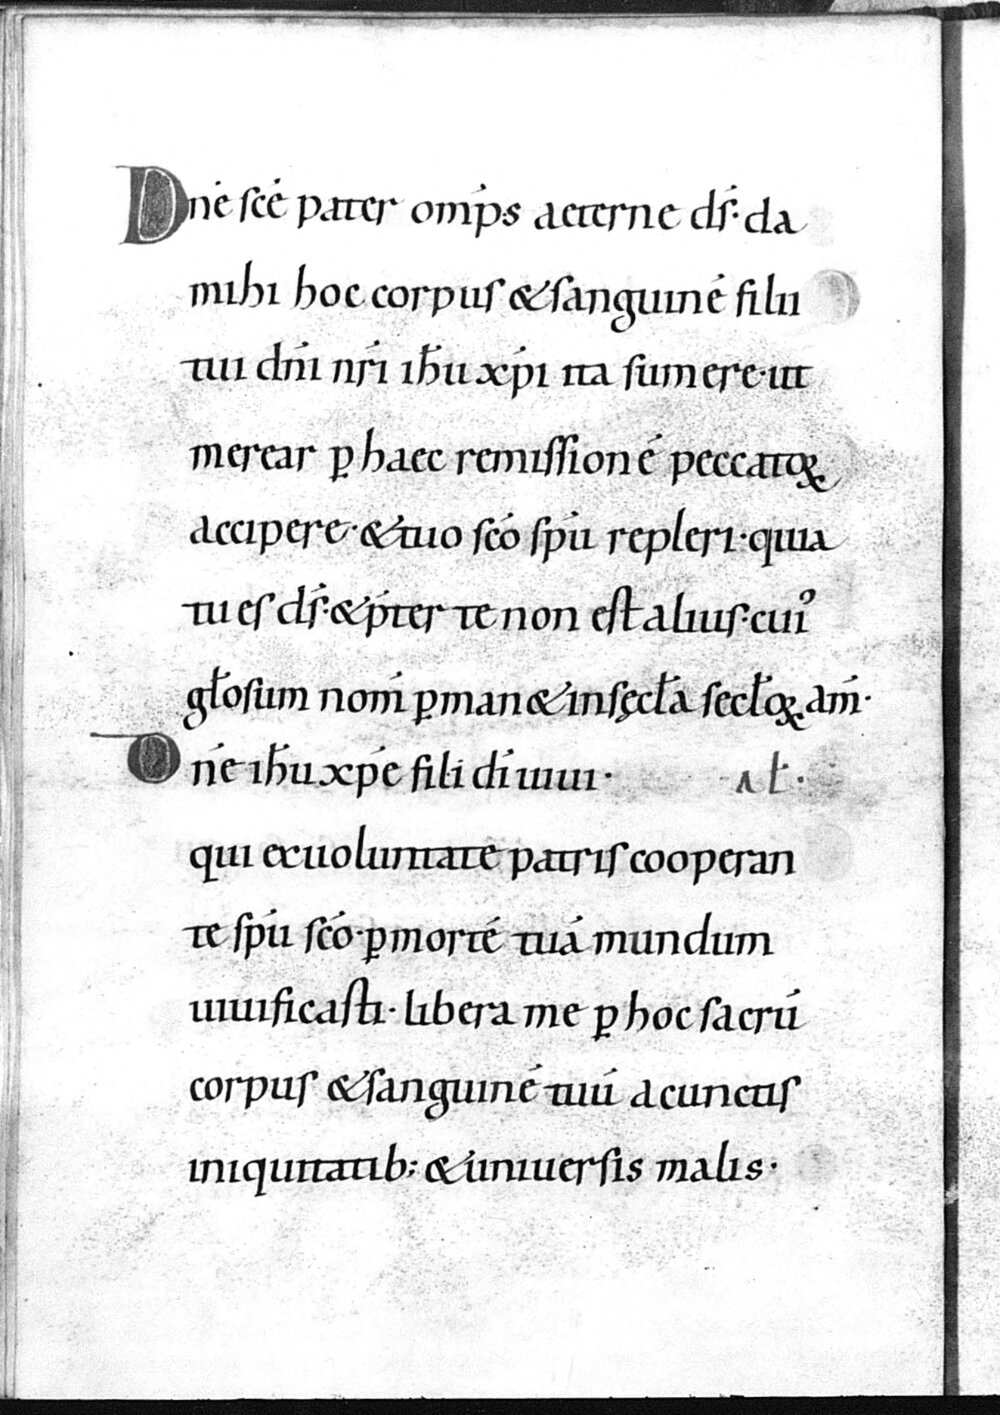 Dn̄e sc̄e pater omīps aeterne ds̄· da
mihi hoc corpus & sanguinē filii
tui dn̄i nr̄i ih̄u xp̄i ita sumere· ut
merear ꝑ haec remissionē peccatoꝝ
accipere· & tuo sc̄o sp̄u repleri· quia
tu es ds̄· & p̄ter te non est alius· cuiꝰ
gł̄osum nom̄ ꝑman& in sęcł̄a secł̄oꝝ am̄·
Dn̄e ih̄u xp̄e fili dī uiui· al̄·
qui ex uoluntate patris cooperan
te sp̄u sc̄o· ꝑ mortē tuā mundum
uiuificasti· libera me ꝑ hoc sacrū
corpus & sanguinē tuū a cunctis
iniquitatib; & uniuersis malis·